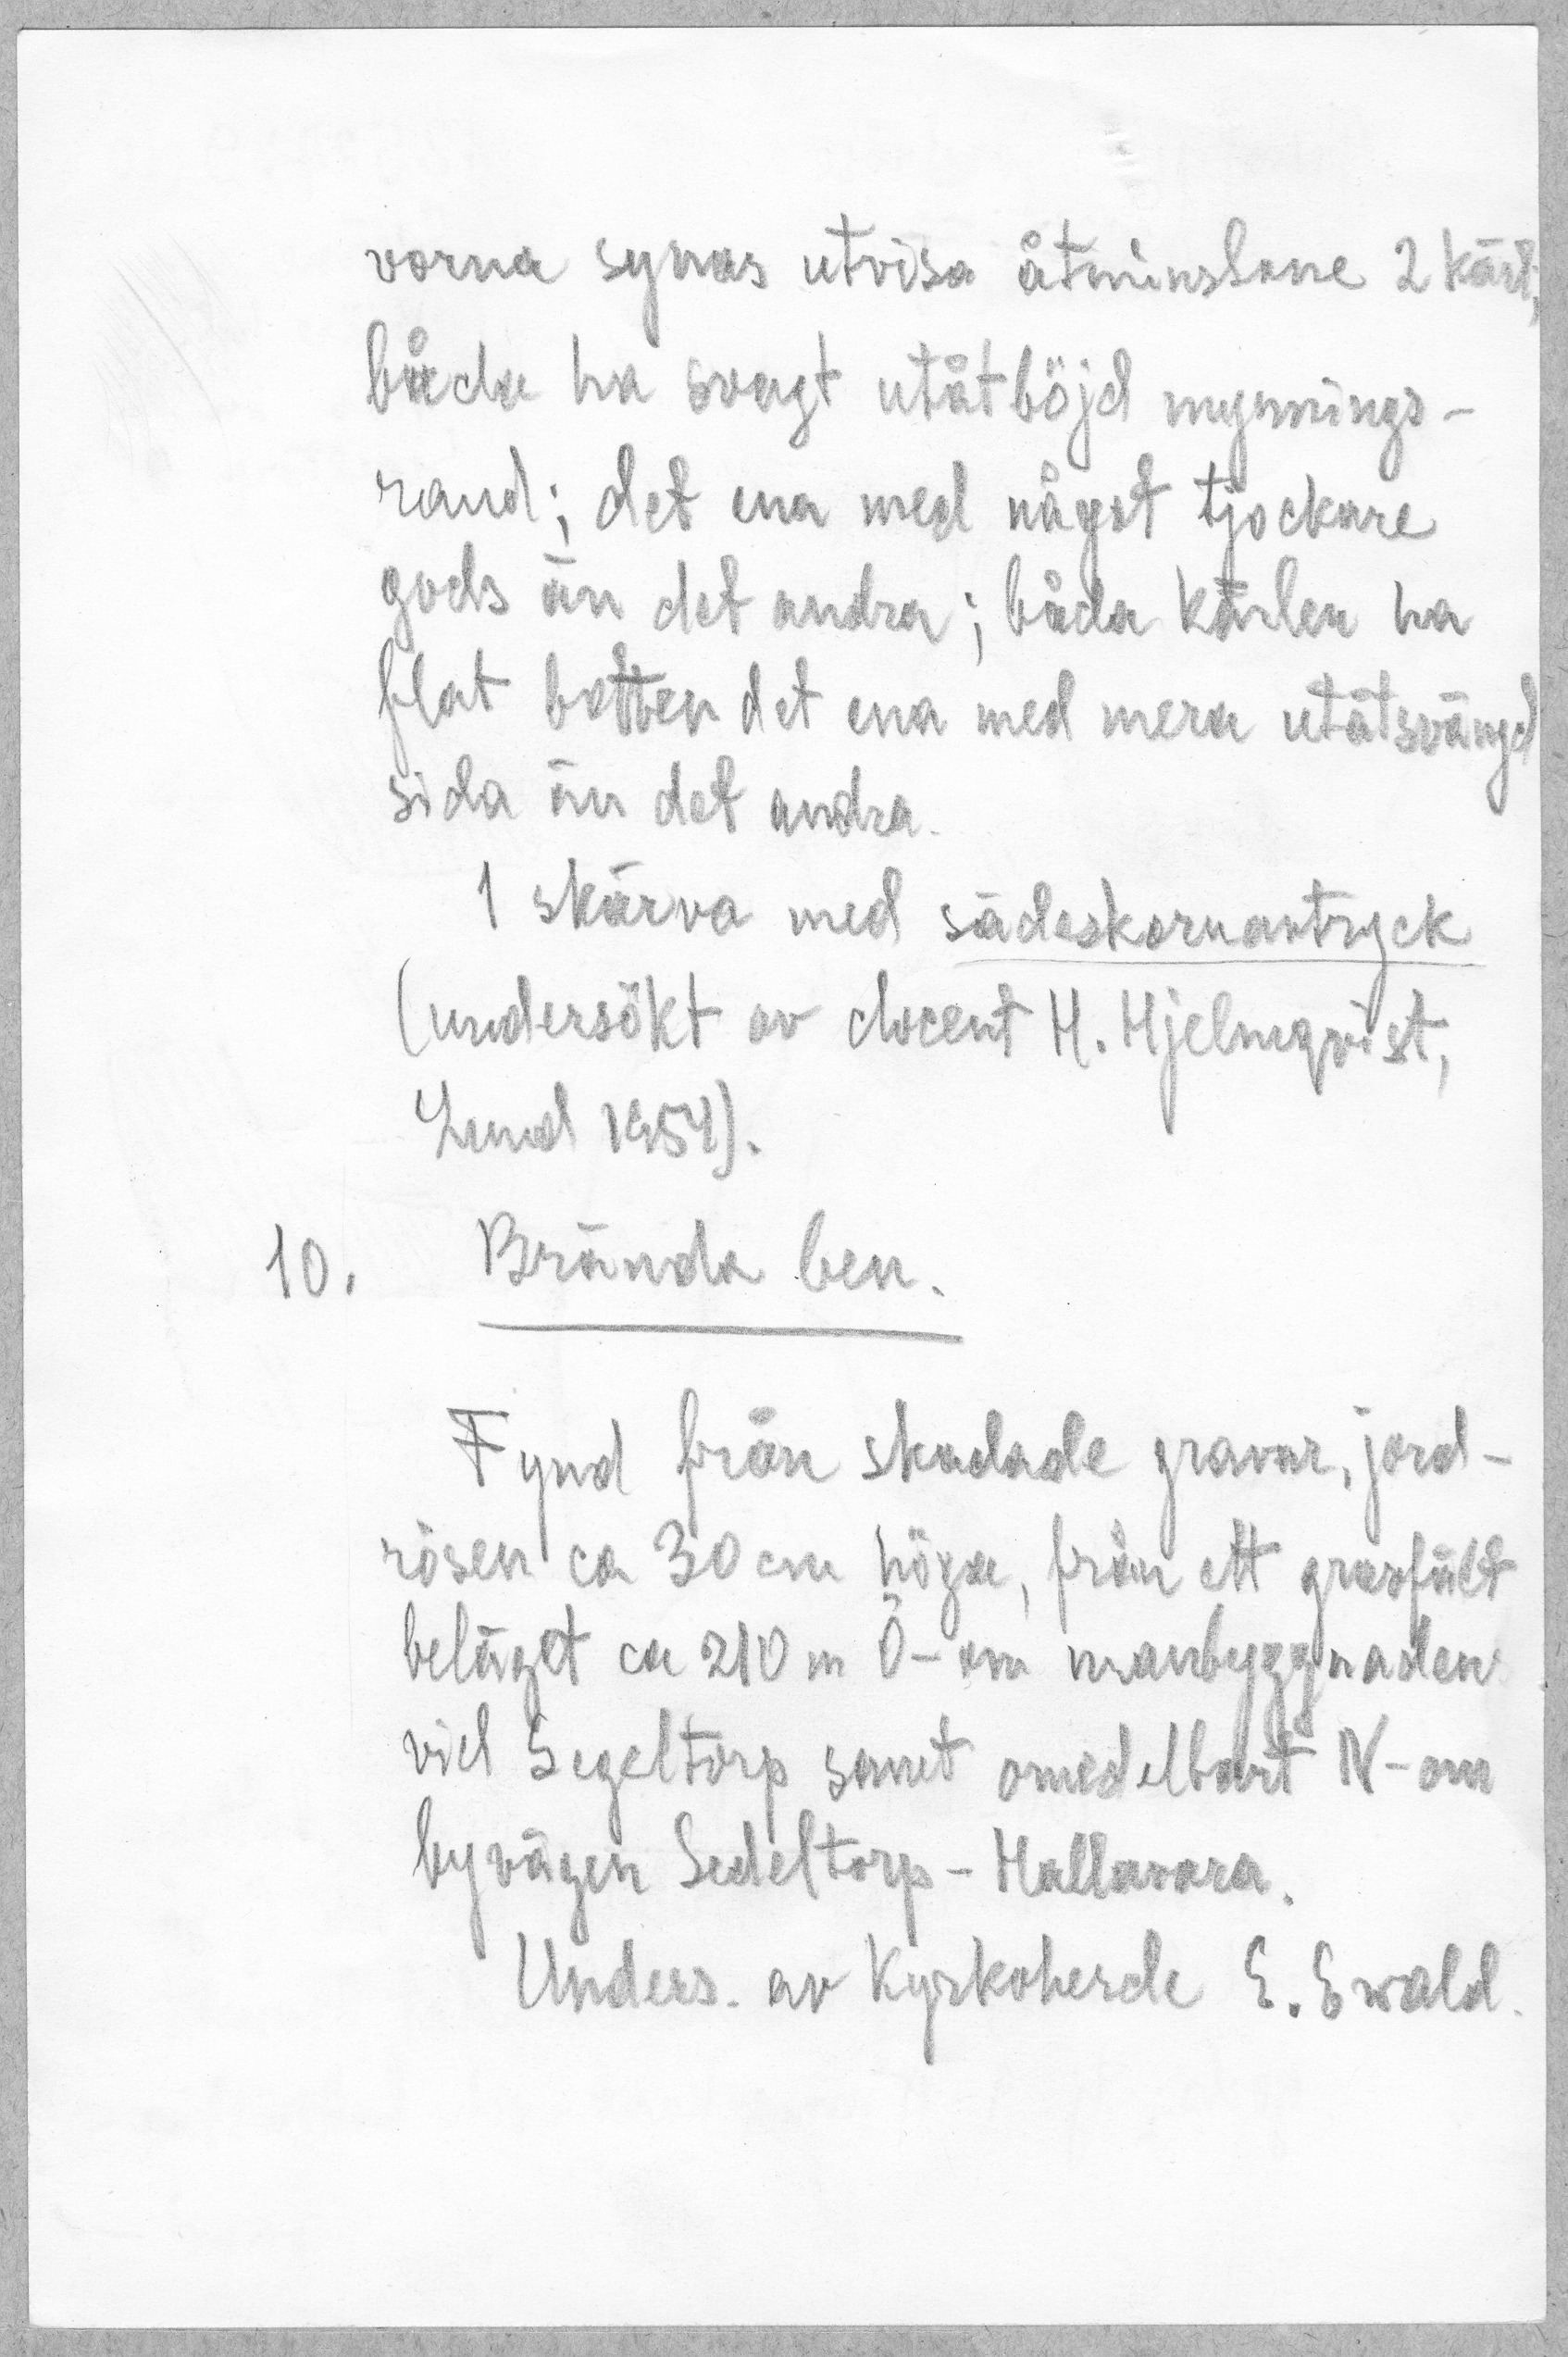 vorna synas utvisa åtminstone 2 kärl;
båda ha svagt utåtböjd mynnings-
rand; det ena med något tjockare
gods än det andra; båda kärlen ha
flat botten det ena med mera utåtsvängd
sida än det andra.
1 skärva med sädeskornavtryck
(undersökt av docent H. Hjelmqvist,
Lund 1954).
10. Brända ben.
Fynd från skadade gravar, jord-
rösen ca 30 cm höga, från ett gravfält
beläget ca 210 m Ö-om manbyggnaden
vid Segeltorp samt omedelbart N-om
byvägen Sedeltorp - Hallavara.
Unders. av Kyrkoherde E. Ewald.